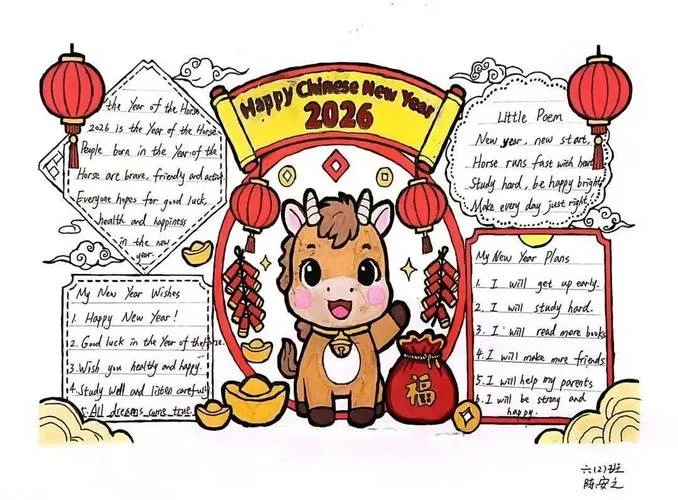 Happy Chinese New Year
2026
the Year of the Horse
2026 is the Year of the Horse
People born in the Year of the
Horse are brave, friendly and activ
Everyone hopes for good luck,
health and happiness
in the new
year.
Little Poem
New year, new start,
Horse runs fast with heart
Study hard, be happy bright
Make every day just right
My New Year Wishes
1. Happy New Year!
2. Good luck in the Year of the Horse.
3. Wish you healthy and happy.
4. Study well and listen carefully
5. All dreams come true.
My New Year Plans
1. I will get up early.
2. I will study hard.
3. I will read more books
4. I will make more friends
5. I will help my parents
6. I will be strong and
happy.
福
六(2)班
陈安之